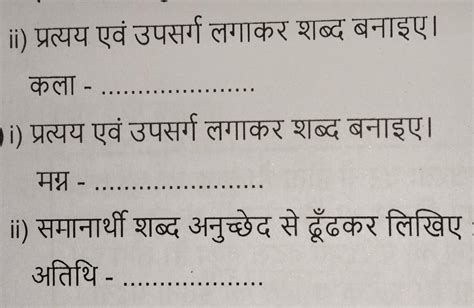 ii) प्रत्यय एवं उपसर्ग लगाकर शब्द बनाइए।
कला - ......................
i) प्रत्यय एवं उपसर्ग लगाकर शब्द बनाइए।
मग्न - ........................
ii) समानार्थी शब्द अनुच्छेद से ढूँढकर लिखिए :
अतिथि - ....................